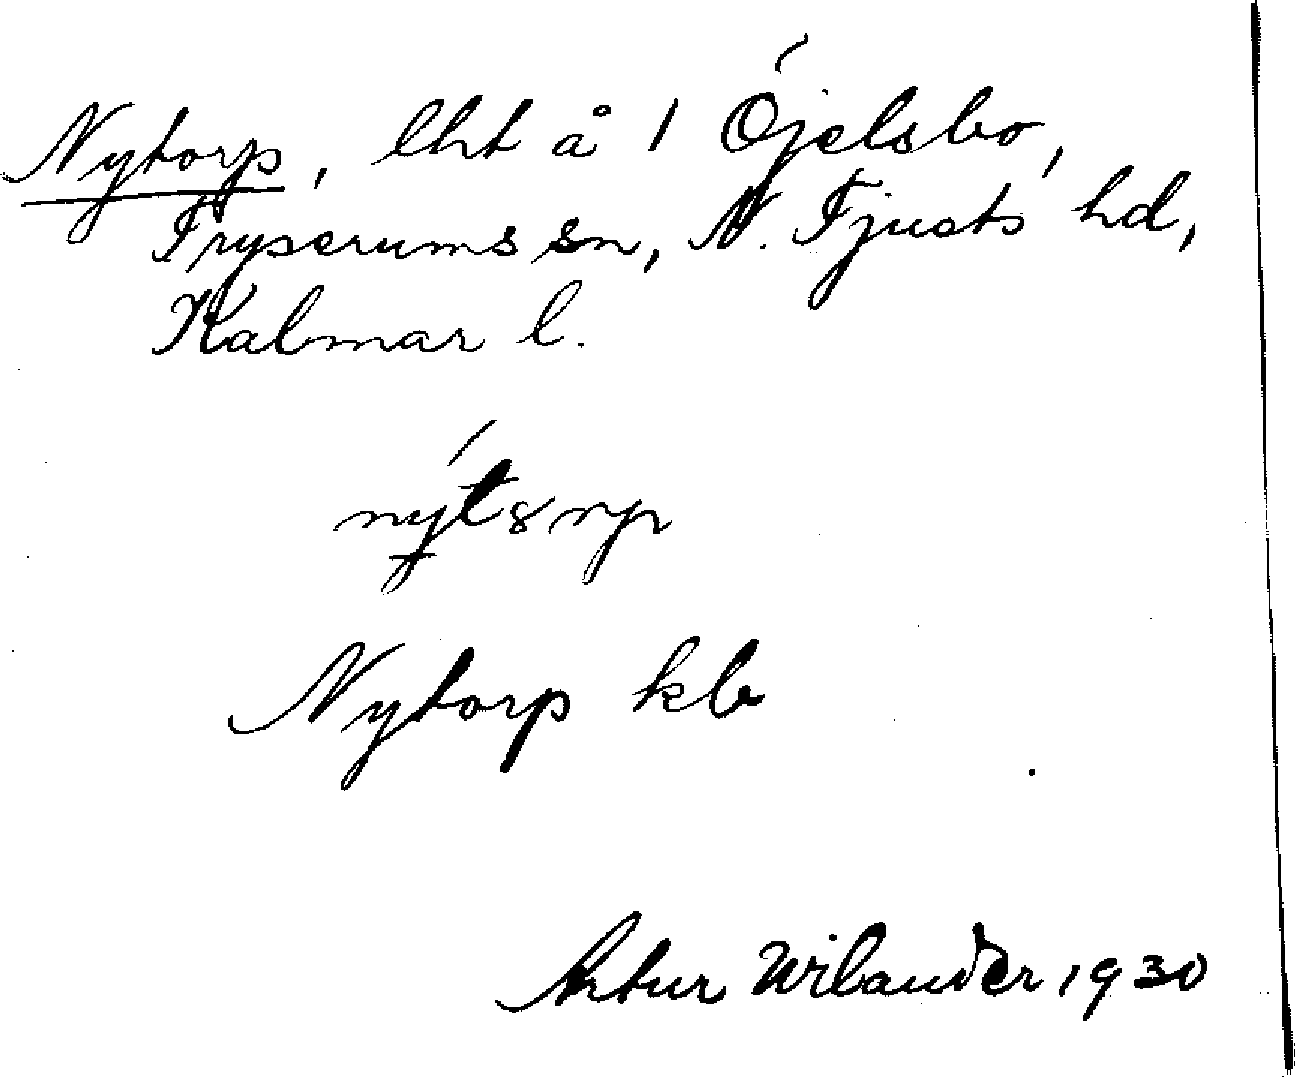 Nytorp, lht å 1 Öjelsbo,
Tryserums sn, N. Tjusts hd,
Kalmar l.
Nytorp kb
Artur Wilander 1930